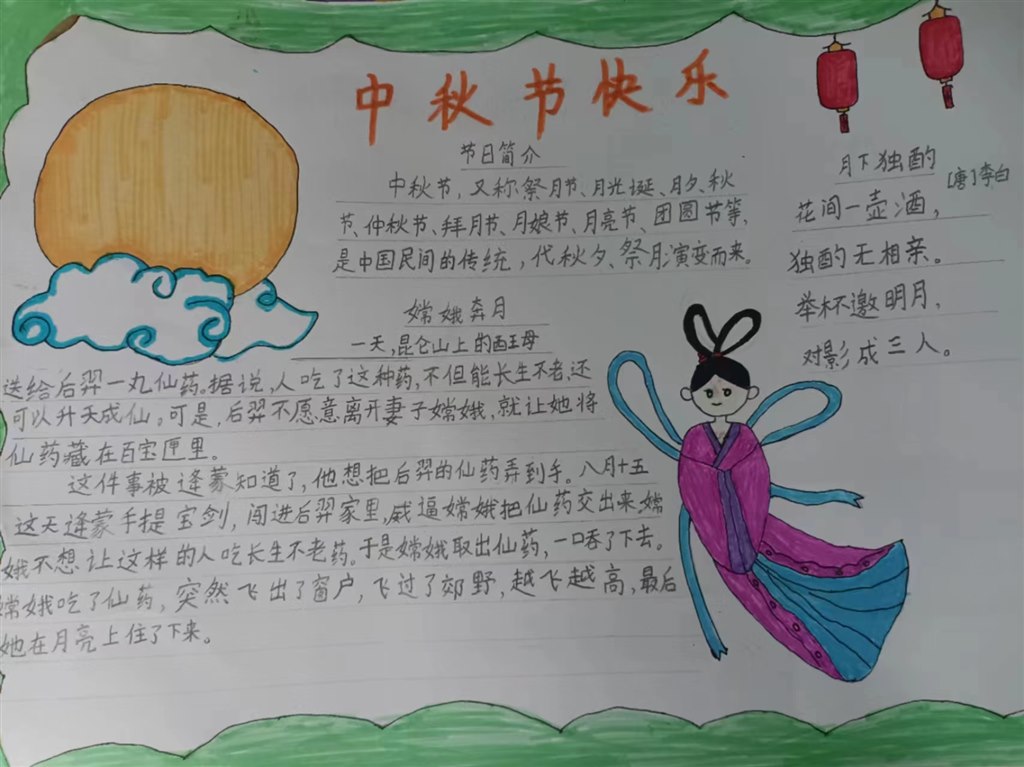 中秋节快乐
节日简介
中秋节,又称祭月节、月光诞、月夕、秋
节、仲秋节、拜月节、月娘节、月亮节、团圆节等,
是中国民间的传统,代秋夕、祭月演变而来。
嫦娥奔月
一天,昆仑山上的西王母
送给后羿一丸仙药。据说,人吃了这种药,不但能长生不老,还
可以升天成仙。可是,后羿不愿意离开妻子嫦娥,就让她将
仙药藏在百宝匣里。
这件事被逄蒙知道了,他想把后羿的仙药弄到手。八月十五
这天逄蒙手提宝剑,闯进后羿家里,威逼嫦娥把仙药交出来,嫦
娥不想让这样的人吃长生不老药。于是嫦娥取出仙药,一口吞了下去。
嫦娥吃了仙药,突然飞出了窗户,飞过了郊野,越飞越高,最后
她在月亮上住了下来。
月下独酌
[唐]李白
花间一壶酒,
独酌无相亲。
举杯邀明月,
对影成三人。